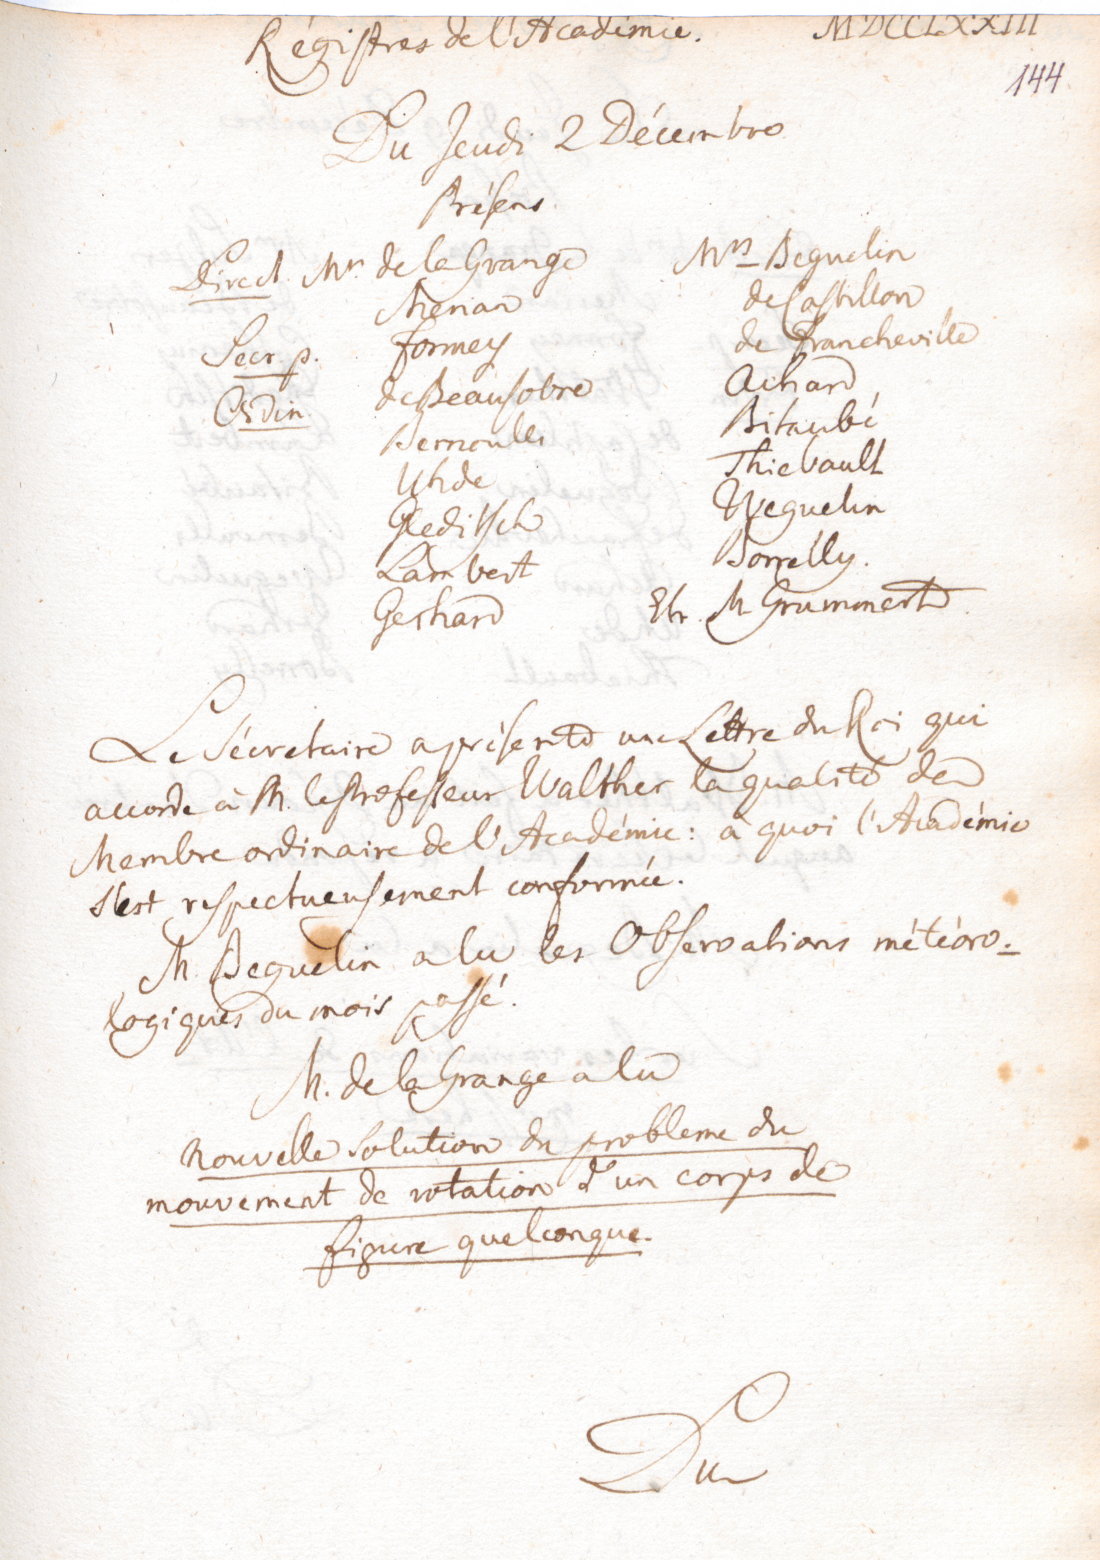 Régistres de l'Académie. MDCCLXXIII
144
Du Jeudi 2 Décembre
Présens
Direct. Mr. de la Grange
Merian
Secr. p. Formey
Ordin. de Beausobre
Bernoulli
Uhde
Gleditsch
Lambert
Gerhard
Mrs Beguelin
de Castillon
de Francheville
Achard
Bitaubé
Thiebault
Weguelin
Borrelly.
Etr. M Grummert
Le Sécretaire a présenté une Lettre du Roi qui
accorde à M. le Professeur Walther la qualité de
Membre ordinaire de l'Académie: à quoi l'Académie
s'est respectueusement conformée.
M. Beguelin a lu les Observations météoro-
logiques du mois passé.
M. de la Grange a lu
nouvelle solution du probleme du
mouvement de rotation d'un corps de
figure quelconque.
Du